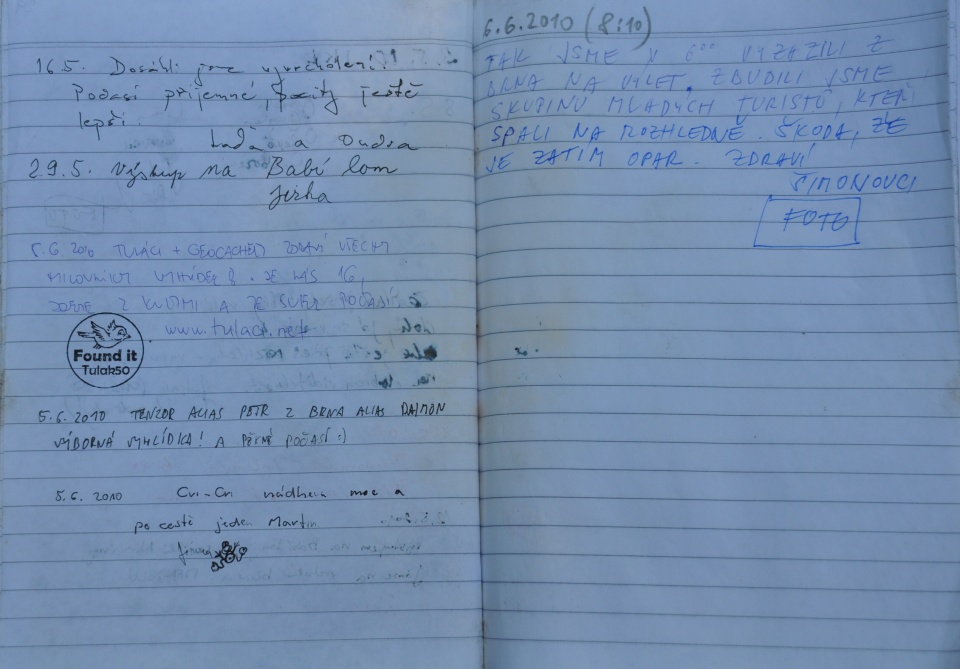 16.5. Dosáhli jsme vyvrcholení.
Počasí příjemné, pocity ještě
lepší.
Laďa a Ondra
29.5. Výstup na Babí lom
Jirka
5.6. 2010 TULÁCI + GEOCACHEŘI ZDRAVÍ VŠECHNY
MILOVNÍKY VYHLÍDEK. JE NÁS 16,
JSME Z A JE SUPER POČASÍ
www.tulaci.net
Found it
Tulak50
5.6.2010 TENZOR ALIAS PETR Z BRNA ALIAS DAIMON
VÝBORNÁ VYHLÍDKA! A PĚKNÉ POČASÍ :)
5.6. 2010 Cvi-Cvi nádhera moc a
po cestě jeden Martin
6.6.2010 (8:10)
TAK JSME V 6°° VYRAZILI Z
BRNA NA VÝLET. ZBUDILI JSME
SKUPINU MLADÝCH TURISTŮ, KTEŘÍ
SPALI NA ROZHLEDNĚ. ŠKODA, ŽE
JE ZATÍM OPAR. ZDRAVÍ
ŠIMONOVCI
FOTO